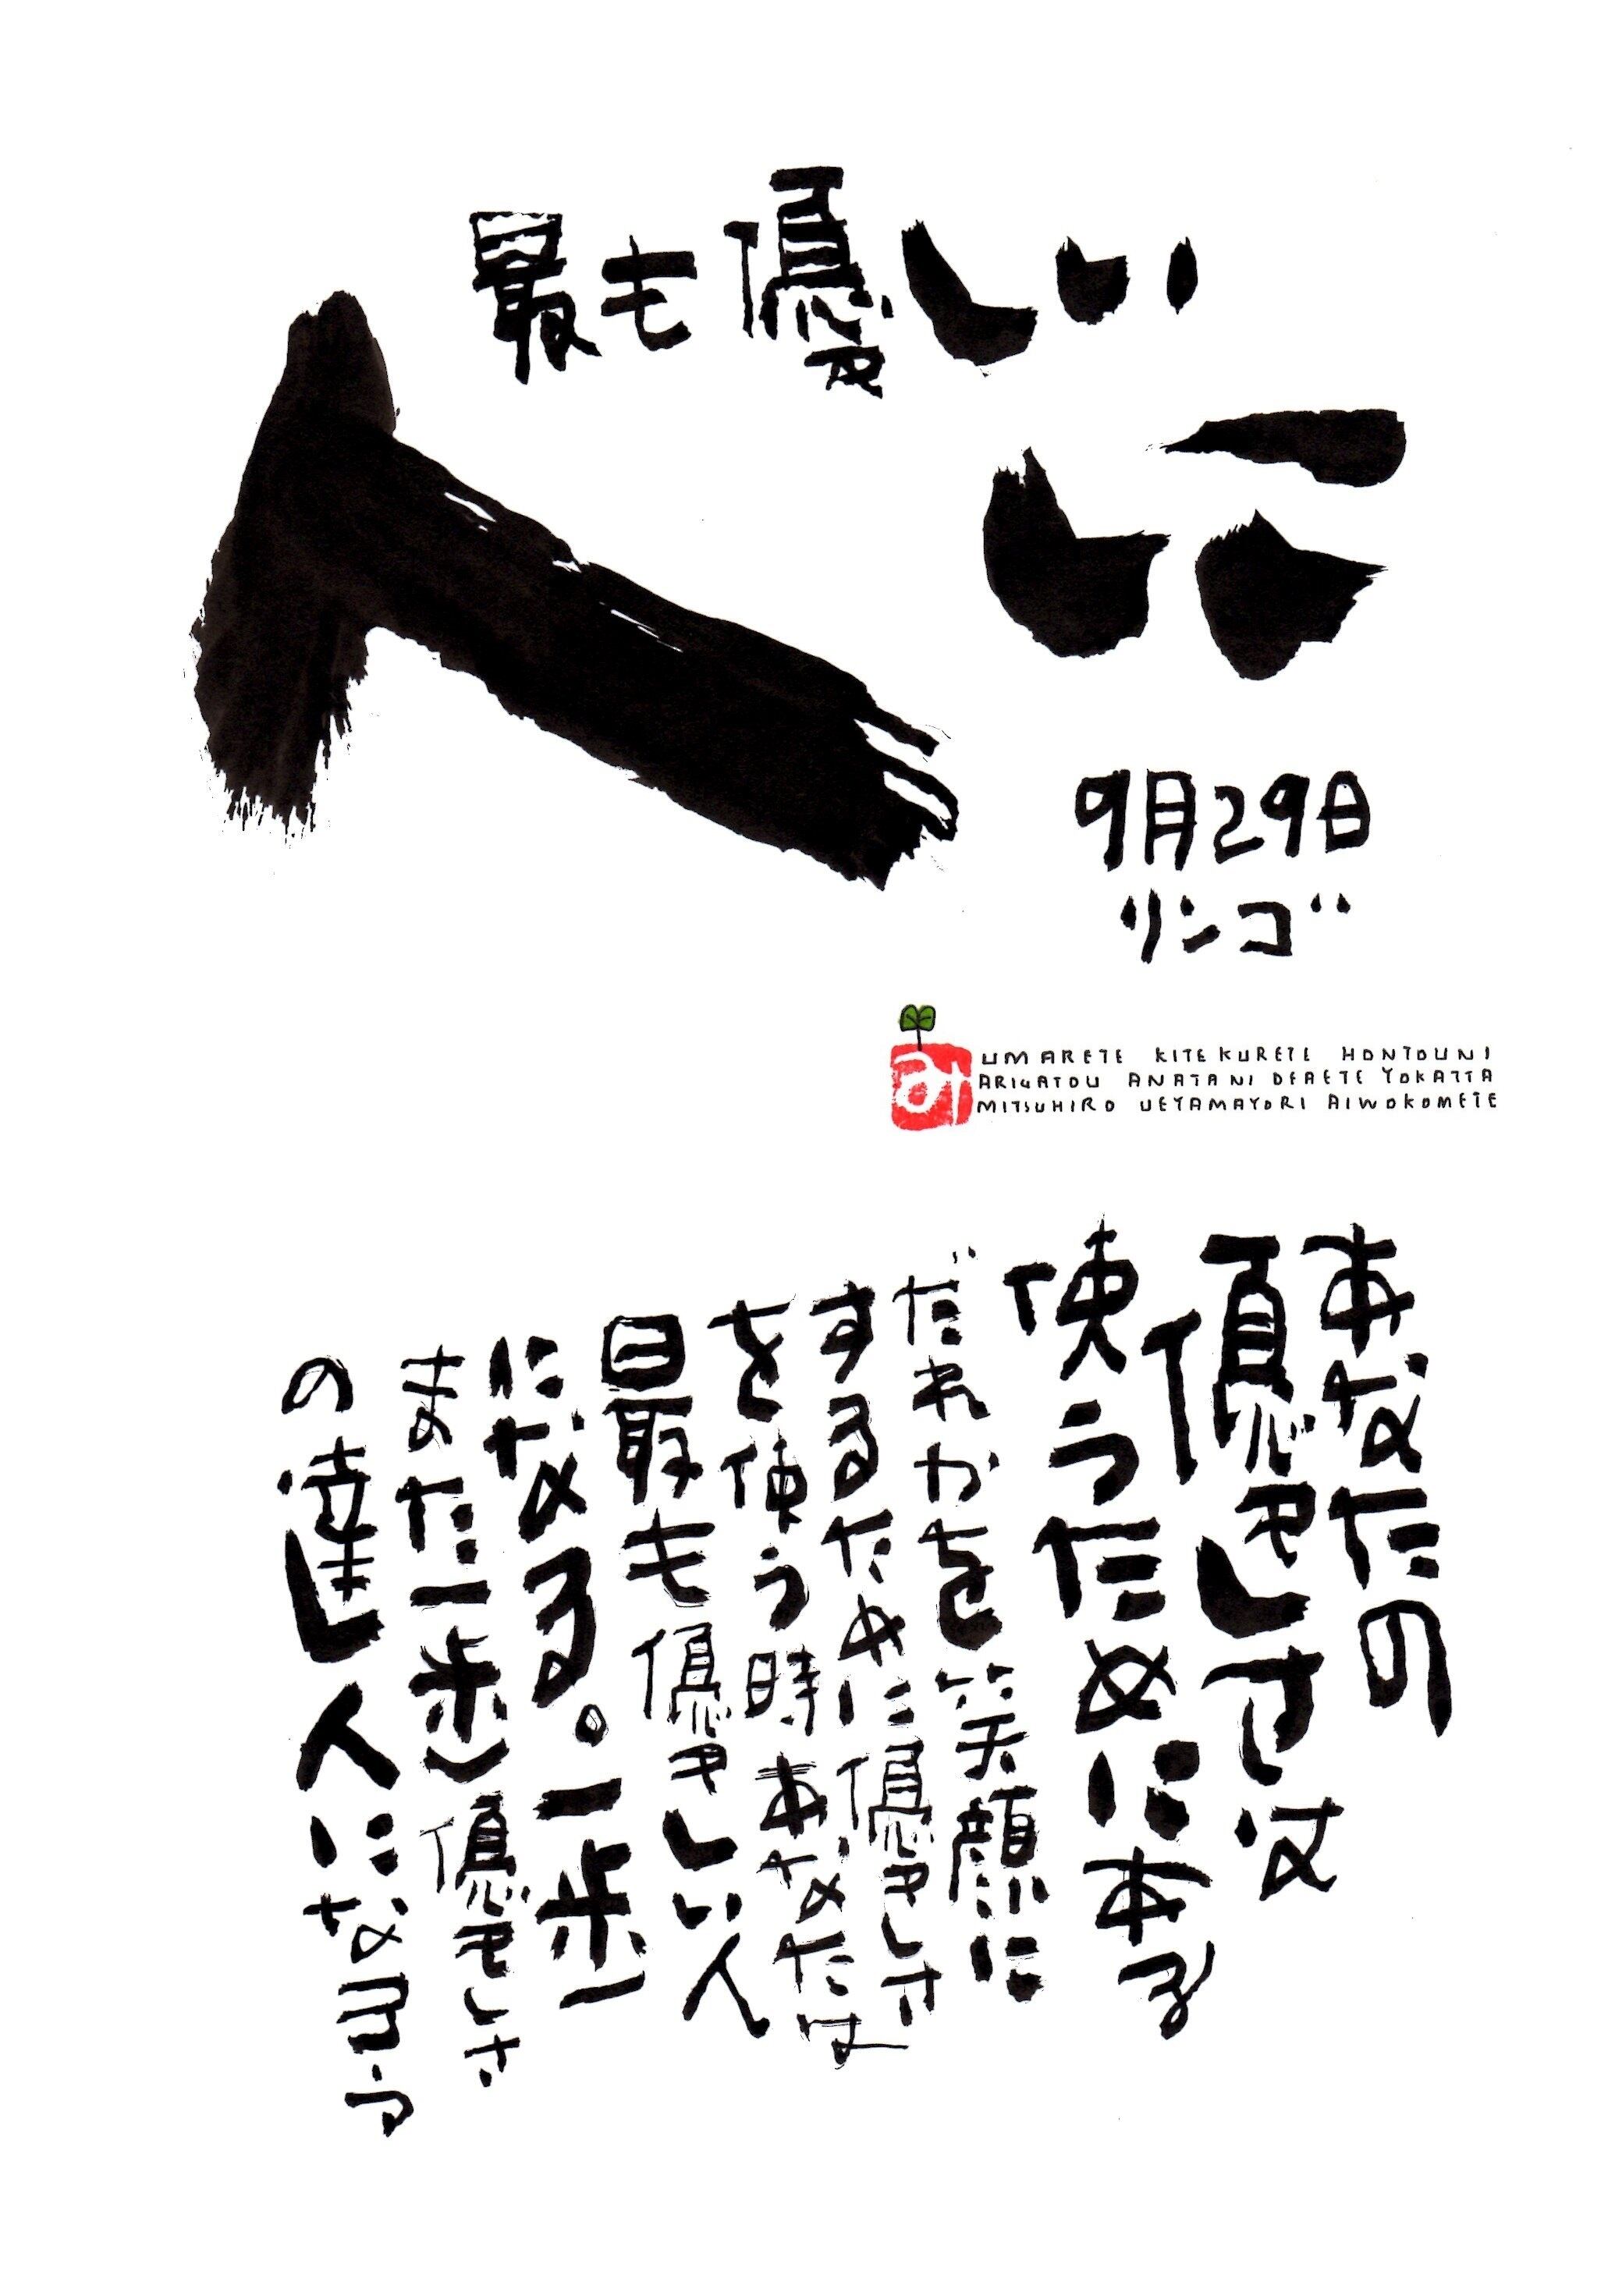 最も優しい
人に
9月29日
リンゴ
み
UMARETE KITEKURETE HONTOUNI
ARIGATOU ANATANI DEAETE YOKATTA
MITSUHIRO UEYAMAYORI AIWOKOMETE
あなたの
優しさは
使うためにある
だれかを笑顔に
するために優しさ
を使う時あなたは
最も優しい人
になる。一歩
また一歩優しさ
の達人になろう